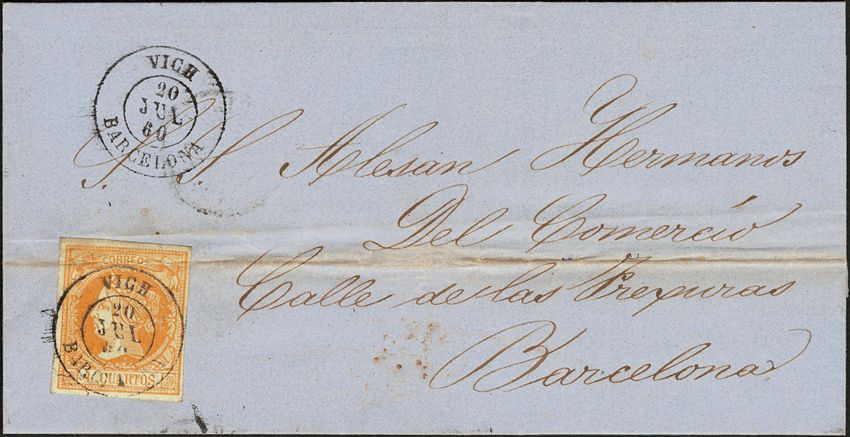 VICH
20
JUL
60
BARCELONA
S. S. Alesan Hermanos
Del Comercio
Calle de las Trexuras
Barcelona
CORREOS
VICH
20
JUL
CUARTOS